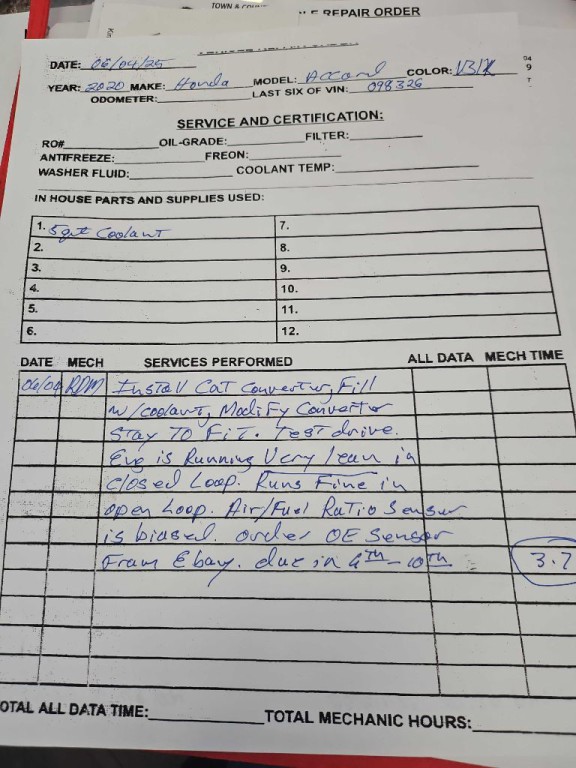 TOWN & COUN
LE REPAIR ORDER
DATE: 06/04/25
YEAR: 2020 MAKE: Honda MODEL: Accord COLOR:
ODOMETER: LAST SIX OF VIN: 098326
SERVICE AND CERTIFICATION:
RO# OIL-GRADE: FILTER:
ANTIFREEZE: FREON:
WASHER FLUID: COOLANT TEMP:
IN HOUSE PARTS AND SUPPLIES USED:
1. 5qt Coolant 7.
2. 8.
3. 9.
4. 10.
5. 11.
6. 12.
DATE MECH SERVICES PERFORMED ALL DATA MECH TIME
06/04 RDM Install Cat Convertor, Fill
w/coolant, Modify Convertor
Stay To Fit. Test drive.
Eng is Running Very lean in
closed Loop. Runs Fine in
open Loop. Air/Fuel Ratio Sensor
is biased. order OE Sensor
From Ebay. due in 9th-10th 3.7
OTAL ALL DATA TIME: TOTAL MECHANIC HOURS: